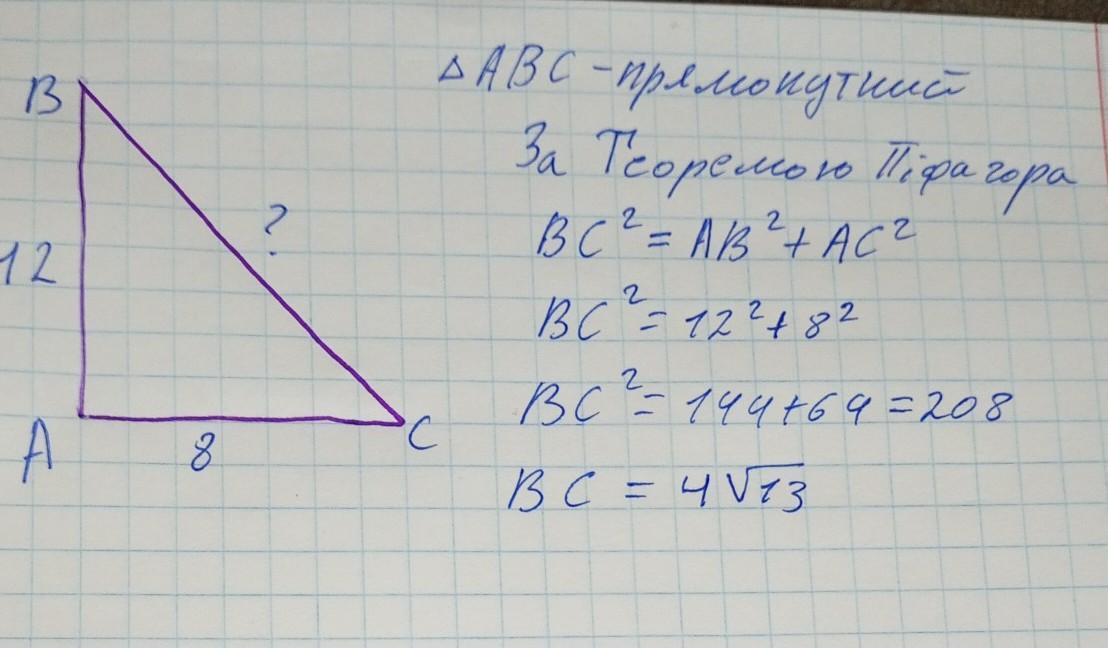 B
12
?
A
8
C
△ABC - прямокутний
За Теоремою Піфагора
BC² = AB² + AC²
BC² = 12² + 8²
BC² = 144+64 = 208
BC = 4√13